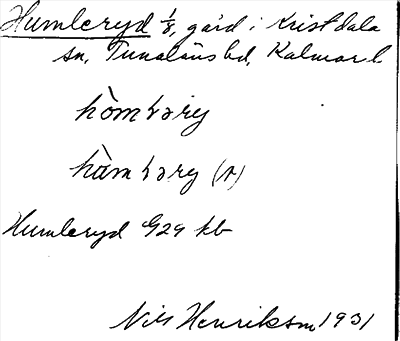 Humleryd 1/8, gård i Kristdala
sn, Tunaläns hd, Kalmar l.
hòmbəry
hàmbəry (n)
Humleryd G29 kb
Nils Henrikson 1931